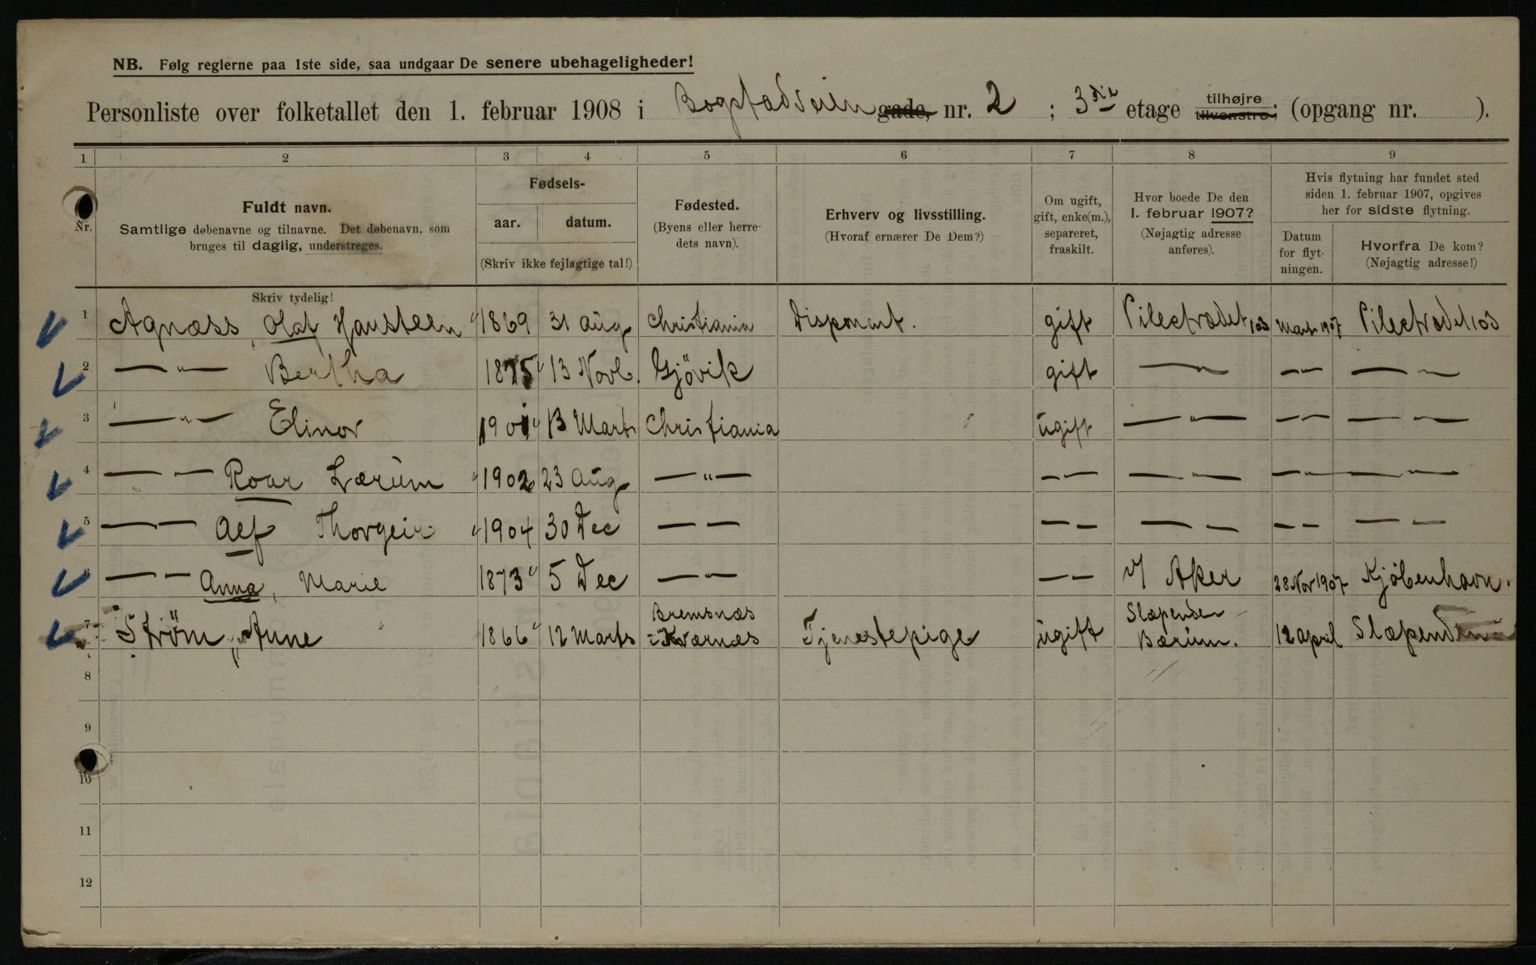 NB. Følg reglerne paa 1ste side, saa undgaar De senere ubehageligheder!
Personliste over folketallet den 1. februar 1908 i Bogstadveien gade, nr. 2 ; 3die etage tilhøjre tilvenstre; (opgang nr. ).
1 2 3 4 5 6 7 8 9
Nr. Fuldt navn. Samtlige døbenavne og tilnavne. Det døbenavn, som bruges til daglig, understreges.
Fødsels- aar. datum. (Skriv ikke fejlagtige tal!)
Fødested. (Byens eller herredets navn).
Erhverv og livsstilling. (Hvoraf ernærer De Dem?)
Om ugift, gift, enke(m.), separeret, fraskilt.
Hvor boede De den 1. februar 1907? (Nøjagtig adresse anføres).
Hvis flytning har fundet sted siden 1. februar 1907, opgives her for sidste flytning.
Datum for flytningen. Hvorfra De kom? (Nøjagtig adresse!)
Skriv tydelig!
1 Agnæss, Olaf Hansteen 1869 31 aug Christiania Disponent. gift Pilestrædet 103 Marts 1907 Pilestrædet 103
2 — " — Bertha 1875 13 Novb. Gjövik gift — " — — " — — " —
3 — " — Elinor 1901 13 Marts Christiania ugift — " — — " — — " —
4 — " — Roar Lærum 1902 23 aug — " — — " — — " — — " — — " —
5 — — Alf Thorgeir 1904 30 Dec — — — — — — — — — —
6 — — Anna, Marie 1873 5 Dec — — — — V/ Aker 28 Nov 1907 Kjøbenhavn.
7 Strøm, Anne 1866 12 Marts Bremsnæs Kværnæs Tjenestepige ugift Slæpenden Bærum. 12 april Slæpenden
8
9
10
11
12